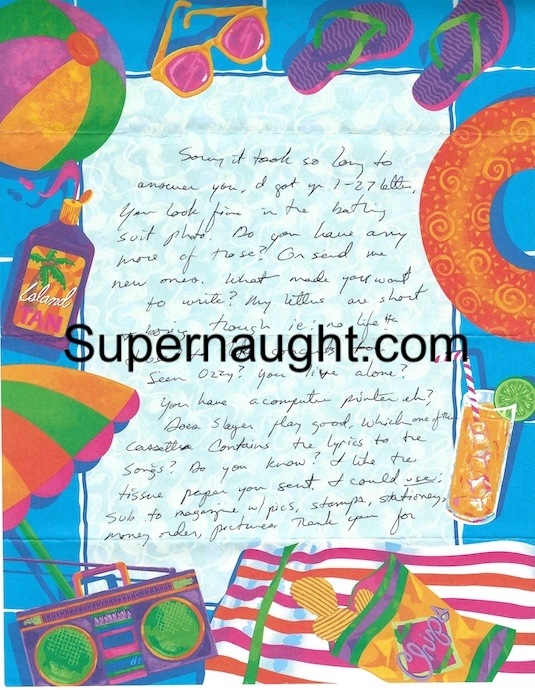 Sorry it took so long to
answer you, I got yr 1-27 letter,
You look fine in the bathing
suit photo. Do you have any
more of those? Or send me
new ones. What made you want
to write? My letters are short
boring though ie; no life
Supernaught.com
Seen Ozzy? You live alone?
You have a computer printer eh?
Does Slayer play good. Which one of the
cassettes contains the lyrics to the
songs? Do you know? I like the
tissue paper you sent. I could use;
sub to magazine w/pics, stamps, stationery,
money order, pictures Thank you for
Island
TAN
Chips